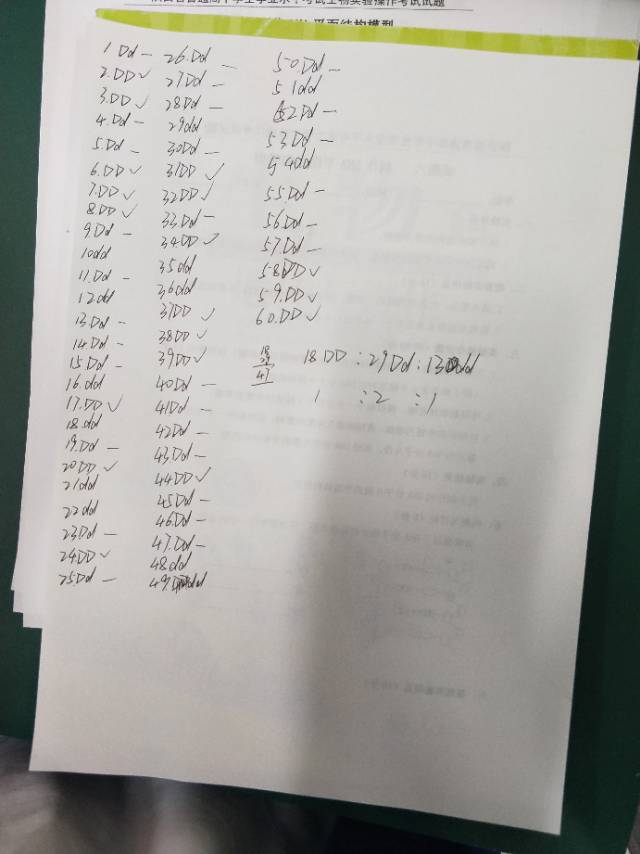 平面结构模型
1 Dd –
2.DD ✓
3.DD ✓
4.Dd –
5.Dd –
6.DD ✓
7.DD ✓
8.DD ✓
9.Dd –
10dd
11.Dd –
12dd
13Dd –
14Dd –
15Dd –
16.dd
17.DD ✓
18.dd
19.Dd –
20DD ✓
21dd
22dd
23Dd –
24DD ✓
25Dd –
26.Dd –
27Dd –
28Dd –
29dd
30Dd –
31DD ✓
32DD ✓
33Dd –
34DD ✓
35dd
36dd
37DD ✓
38DD ✓
39DD ✓
40Dd –
41Dd –
42Dd –
43.Dd –
44DD ✓
45Dd –
46.Dd –
47.Dd –
48dd
49dd
50Dd –
51dd
52Dd –
53Dd –
54dd
55Dd –
56Dd –
57Dd –
58DD ✓
59.DD ✓
60.DD ✓
18
29
47
18 DD : 29Dd : 13dd
1 : 2 : 1